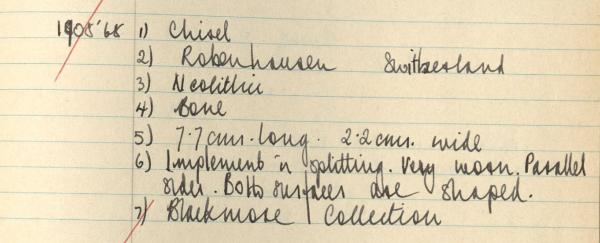 1908'68 1) Chisel
2) Robenhausen Switzerland
3) Neolithic
4) Bone
5) 7.7 cms. long. 2.2 cms. wide
6) Implement 'n splitting. Very worn. Parallel
sides. Both surfaces are shaped.
7) Blackmore Collection